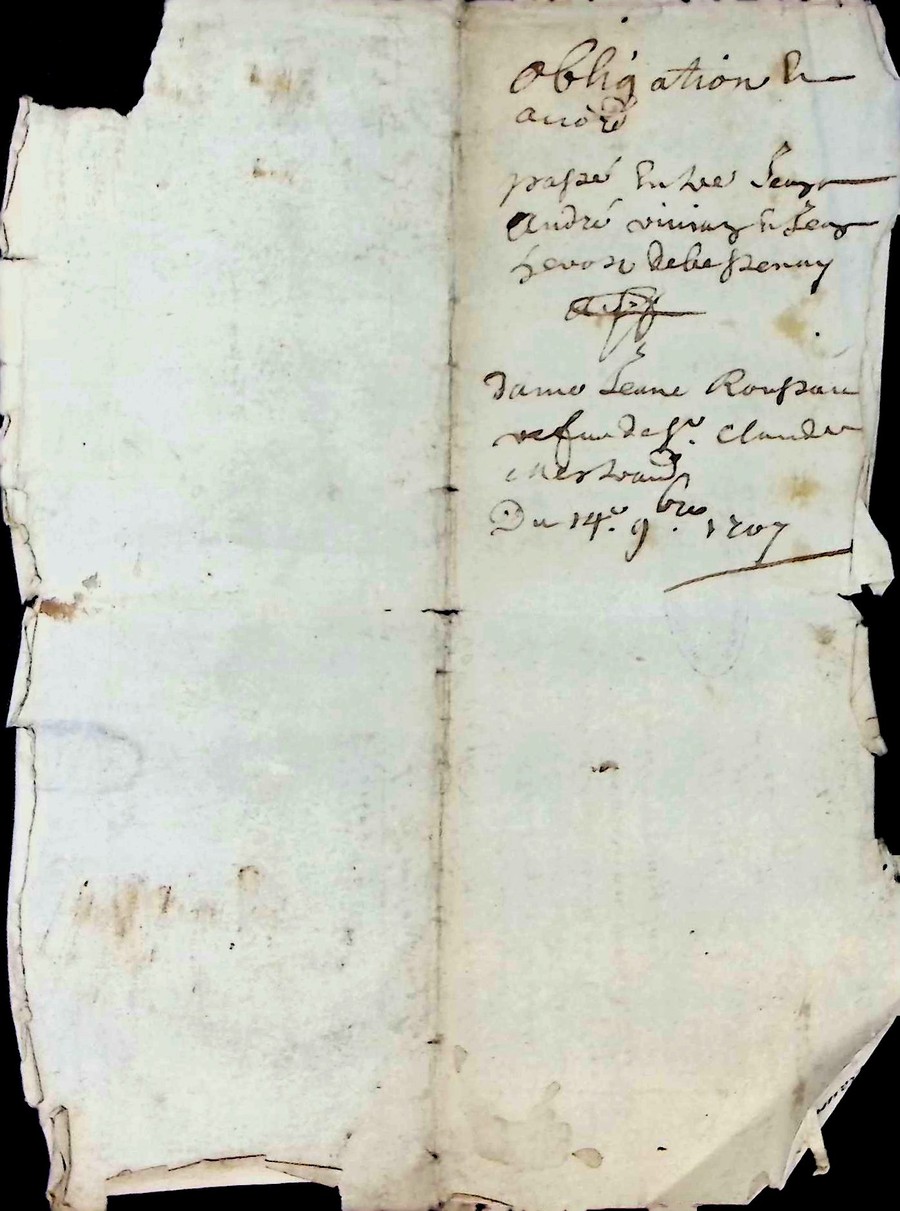 Obligation Et
accord
passé Entre Jean
André viviany Et Jean
de bessenay
dame Jeane Rousseau
vefue de Sr. Claude
Mestrand
Du 14e. 9bre. 1707